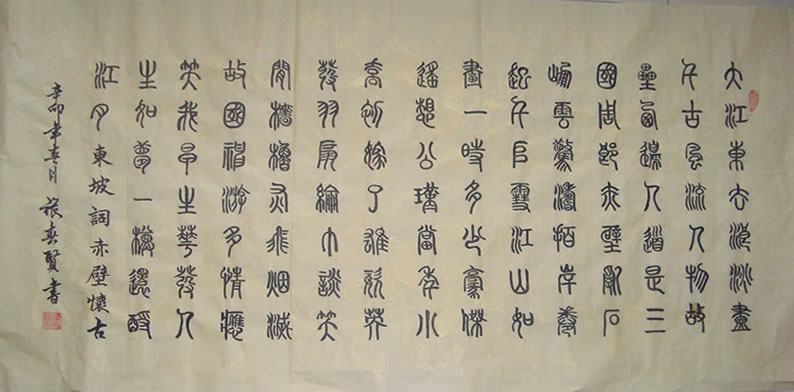 大江東去浪淘盡
千古風流人物故
壘西邊人道是三
國周郎赤壁亂石
崩雲驚濤拍岸卷
起千堆雪江山如
畫一時多少豪傑
遙想公瑾當年小
喬初嫁了雄姿英
發羽扇綸巾談笑
間檣櫓灰飛烟滅
故國神游多情應
笑我早生華發人
生如夢一樽還酹
江月東坡詞赤壁懷古
辛卯年春月張春賢書